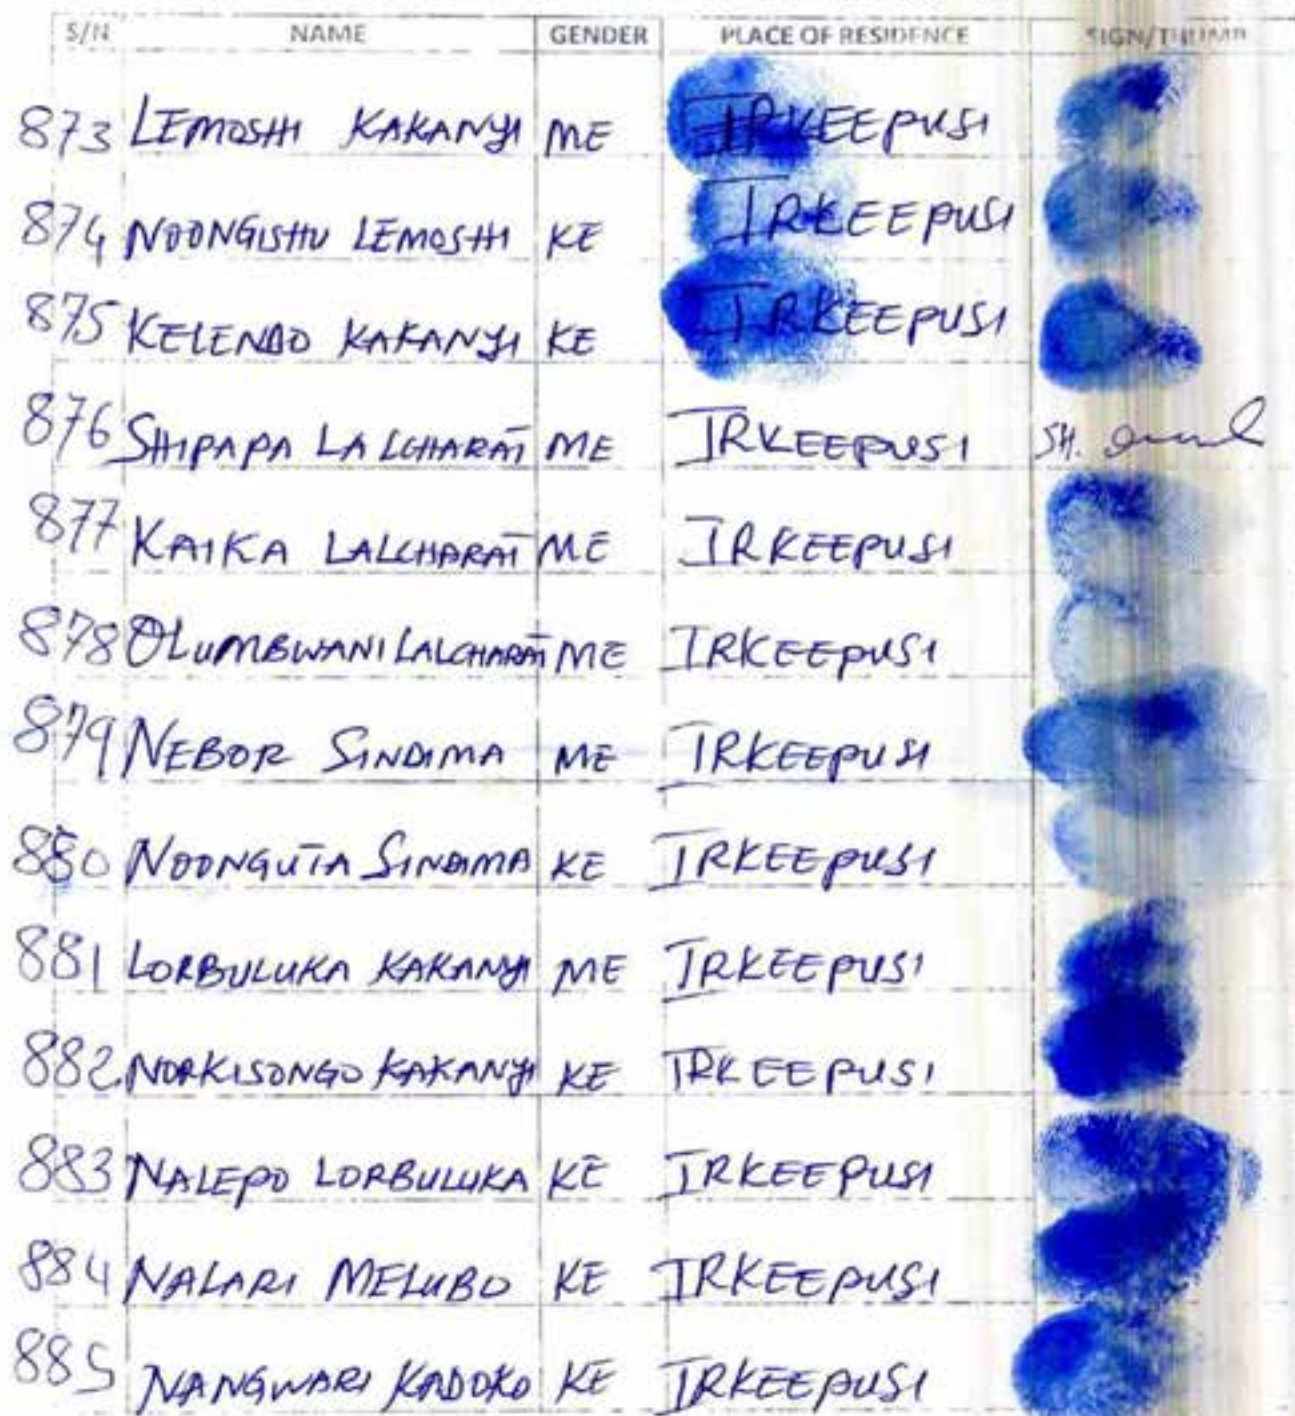 S/N NAME GENDER PLACE OF RESIDENCE SIGN/THUMB
873 LEMOSHI KAKANYI ME IRKEEPUSI
874 NOONGISHU LEMOSHI KE IRKEEPUSI
875 KELENDO KAKANYI KE IRKEEPUSI
876 SHIPAPA LALCHARAT ME IRKEEPUSI SH.
877 KAIKA LALCHARAT ME IRKEEPUSI
878 OLUMBWANI LALCHARAT ME IRKEEPUSI
879 NEBOR SINDIMA ME IRKEEPUSI
880 NOONGUTA SINDIMA KE IRKEEPUSI
881 LORBULUKA KAKANYI ME IRKEEPUSI
882 NORKISONGO KAKANYI KE IRKEEPUSI
883 NALEPO LORBULUKA KE IRKEEPUSI
884 NALARI MELUBO KE IRKEEPUSI
885 NANGWARI KADOKO KE IRKEEPUSI